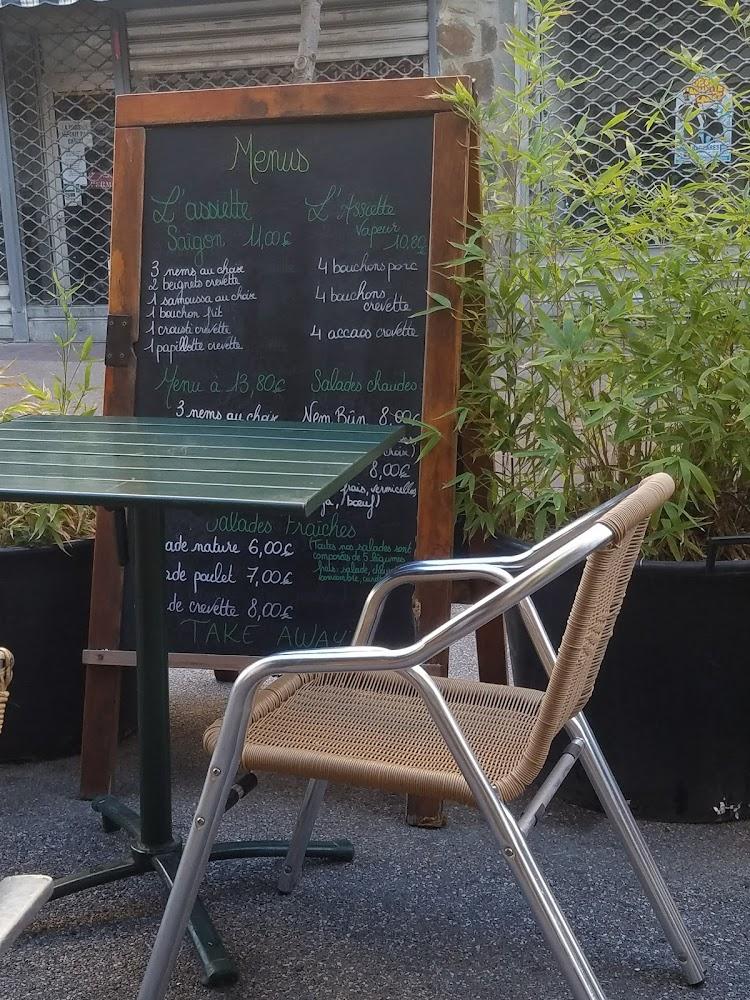 Menus
L'assiette
Saïgon 11,00€
3 nems au choix
2 beignets crevette
1 samoussa au choix
1 bouchon frit
1 crousti crevette
1 papillotte crevette
L'Assiette
Vapeur
10,80
4 bouchons porc
4 bouchons
crevette
4 accaos crevette
Menu à 13,80€
3 nems au choix
Salades chaudes
Nem Bùn 8,00€
choix)
8,00€
frais, vermicelles
, bœuf)
Salades Fraîches
ade nature 6,00€
ade poulet 7,00€
de crevette 8,00€
(Toutes nos salades sont
composées de 5 légumes
frais: salade,
TAKE AWAY